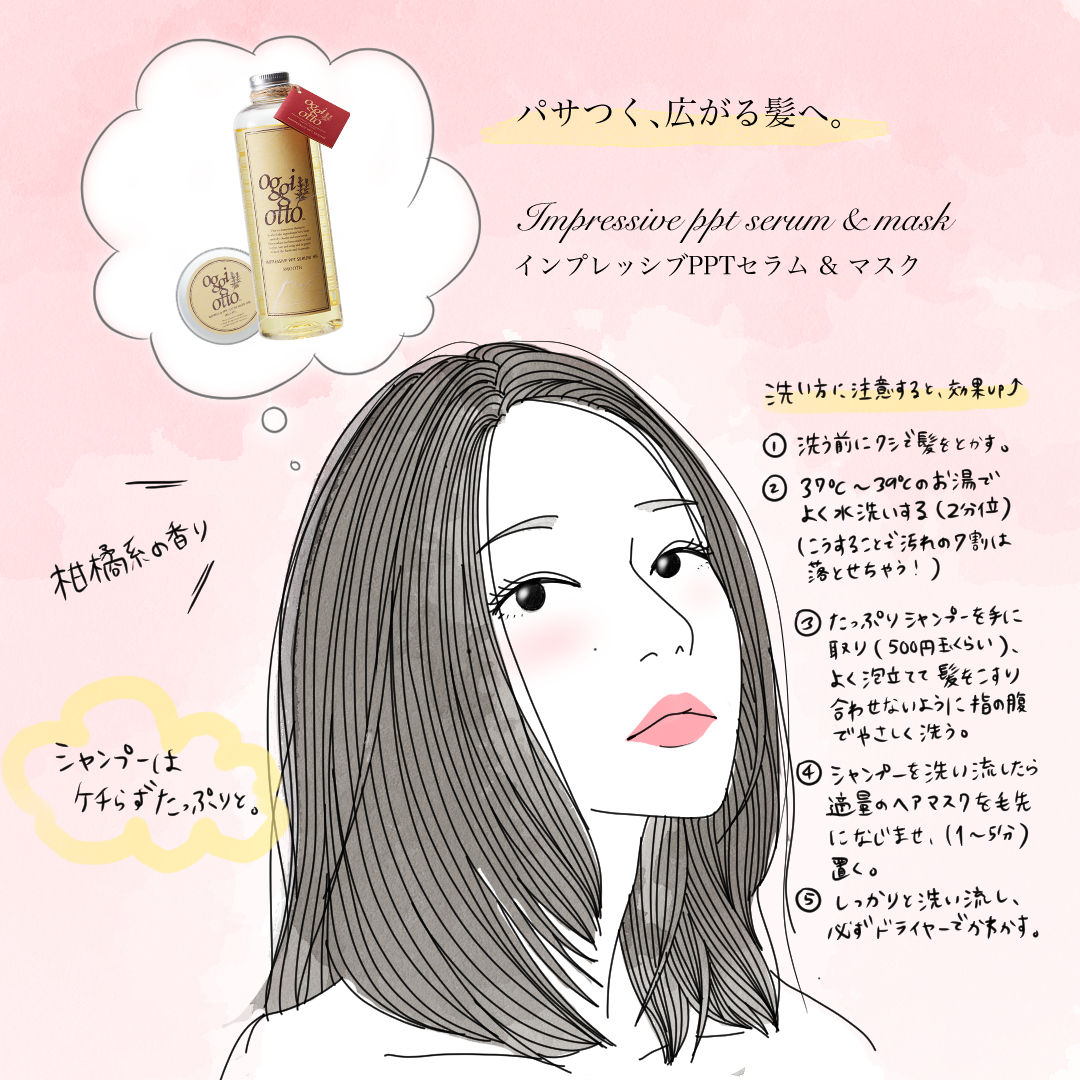 oggi
otto
oggi
otto
SMOOTH
oggi
otto
パサつく、広がる髪へ。
Impressive ppt serum & mask
インプレッシブPPTセラム & マスク
洗い方に注意すると、効果up↑
① 洗う前にクシで髪をとかす。
② 37℃～39℃のお湯で
よく水洗いする(2分位)
(こうすることで汚れの7割は
落とせちゃう!)
③ たっぷりシャンプーを手に
取り(500円玉くらい)、
よく泡立てて髪をこすり
合わせないように指の腹
でやさしく洗う。
④ シャンプーを洗い流したら
適量のヘアマスクを毛先
になじませ、(1～5分)
置く。
⑤ しっかりと洗い流し、
必ずドライヤーでかわかす。
柑橘系の香り
シャンプーは
ケチらずたっぷりと。